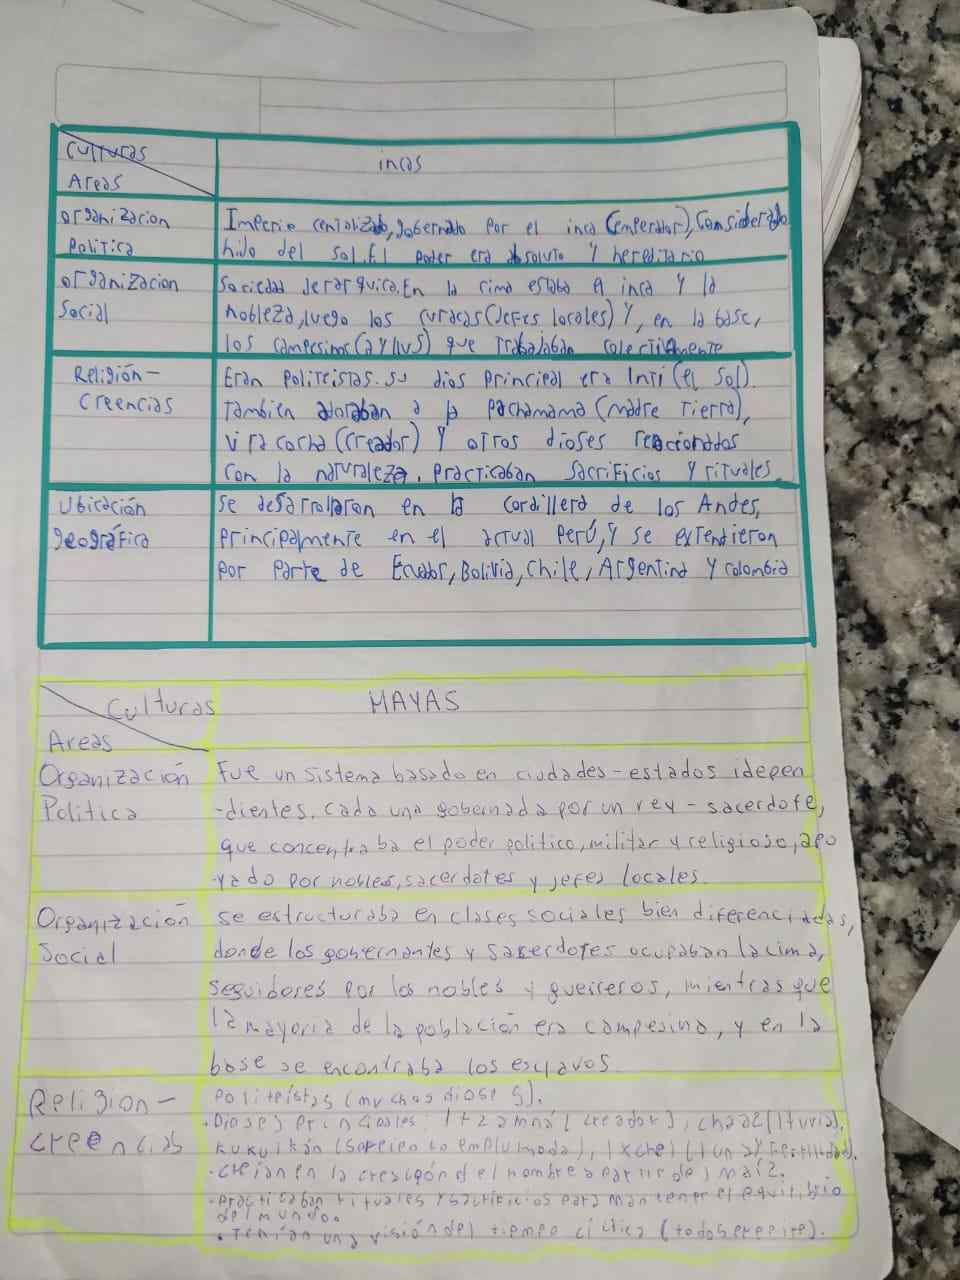 Culturas
Areas
incas
organizacion
Politica
Imperio centalizado, gobernado por el inca (emperador), considerado
hido del sol. El poder era absoluto y hereditario
organizacion
Social
Sociedad Jerarquica. En la cima estaba el inca y la
nobleza, luego los curacas (Jefes locales) Y, en la base,
los campesinos (ayllus) que trabajaban colectivamente
Religión -
Creencias
Eran Politeistas. su dios principal era Inti (el sol).
Tambien adoraban a la pachamama (madre Tierra),
viracocha (creador) Y otros dioses relacionados
con la naturaleza. Practicaban sacrificios y rituales.
Ubicación
geográfica
Se desarrollaron en la Cordillera de los Andes,
principalmente en el actual Perú, Y se extendieron
por parte de Ecuador, Bolivia, Chile, Argentina Y colombia
Culturas
Areas
MAYAS
Organización
Politica
Fue un sistema basado en ciudades-estados idepen
-dientes. cada una gobernada por un rey - sacerdote,
que concentraba el poder politico, militar y religioso, apo
-yado por nobles, sacerdotes y jefes locales.
Organización
Social
se estructuraba en clases sociales bien diferenciadas,
donde los gobernantes y sacerdotes ocupaban la cima,
seguidores por los nobles y gueirreros, mientras que
la mayoria de la población era campesina, y en la
base se encontraba los esclavos.
Religion -
creencias
Politeístas (muchos dioses).
• Dioses principales: Itzamná (creador), chaac (lluvia),
Kukulkán (serpiente emplumada), Ixchel (luna y fertilidad).
• creían en la creación del hombre a partir de maíz.
• practicaban rituales y sacrificios para mantener el equilibrio
del mundo.
• Tenían una visión del tiempo cíclica (todo se repite).